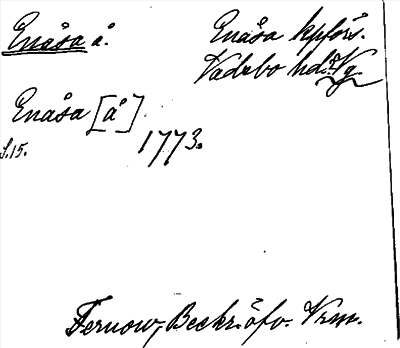 Enåsa å.
Enåsa kpförs.
Vadsbo hd. Vg.
Enåsa [å].
s. 15.
1773.
Fernow, Beskr. öfv. Vrm.